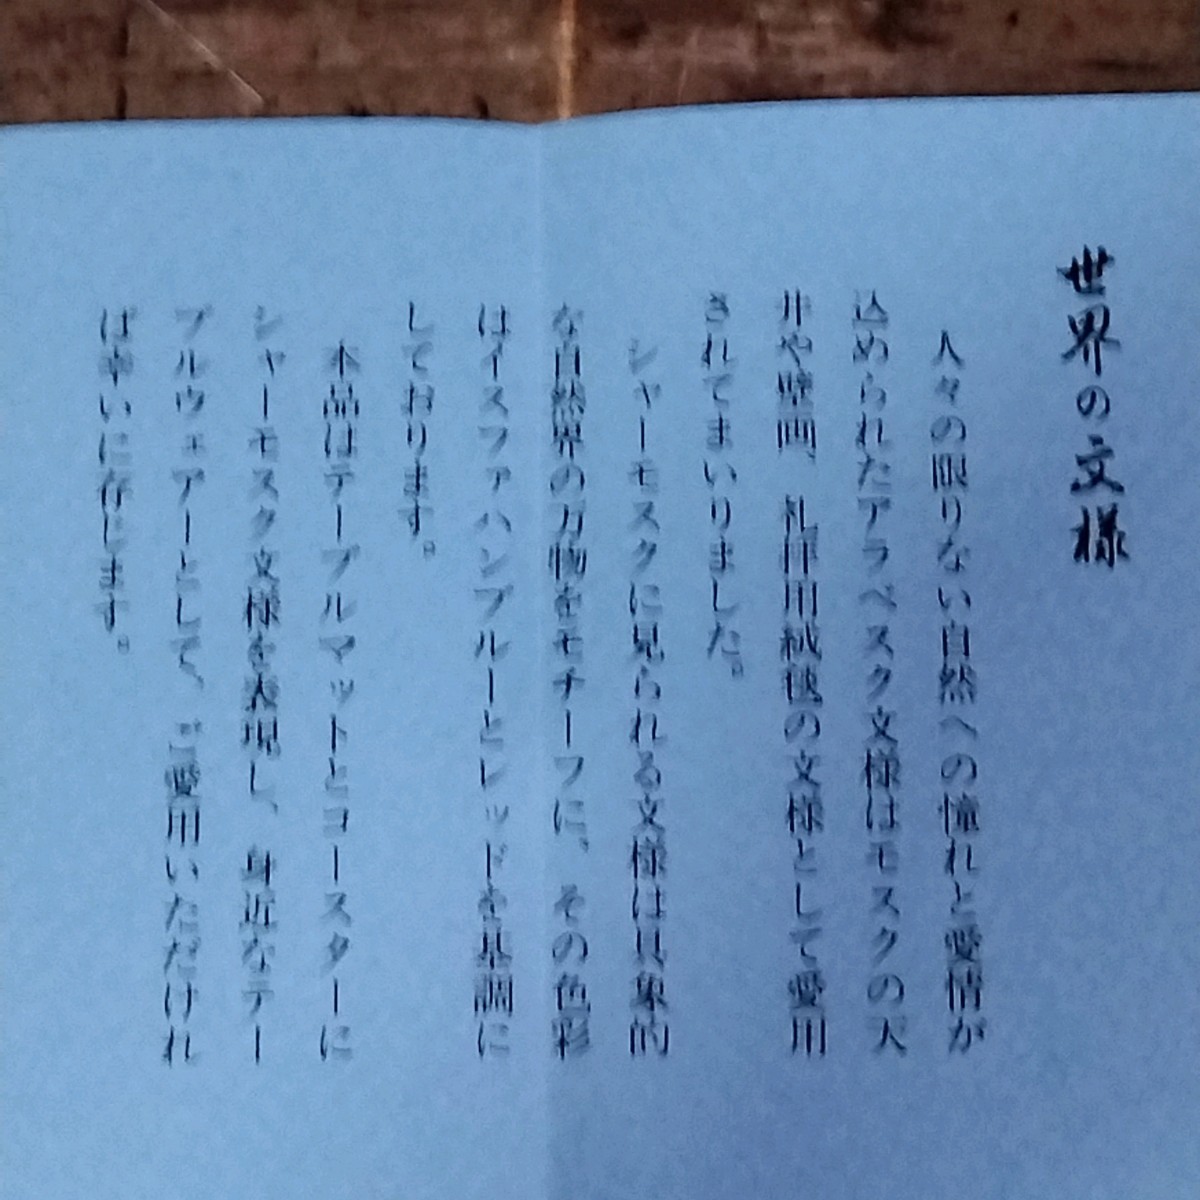 世界の文様
人々の限りない自然への憧れと愛情が
込められたアラベスク文様はモスクの天
井や壁画、礼拝用絨毯の文様として愛用
されてまいりました。
シャーモスクに見られる文様は具象的
な自然界の万物をモチーフに、その色彩
はイスファハンブルーとレッドを基調に
しております。
本品はテーブルマットとコースターに
シャーモスク文様を表現し、身近なテー
ブルウェアーとして、ご愛用いただけれ
ば幸いに存じます。